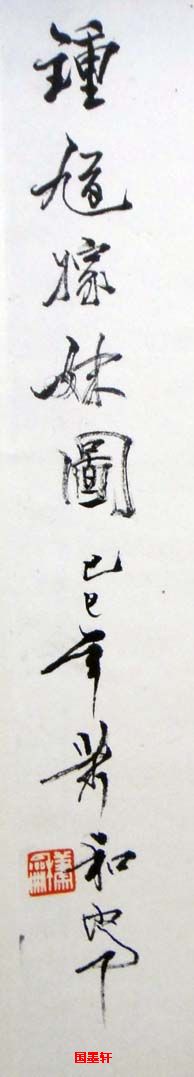 鍾馗嫁妹圖己巳年
和
国墨轩